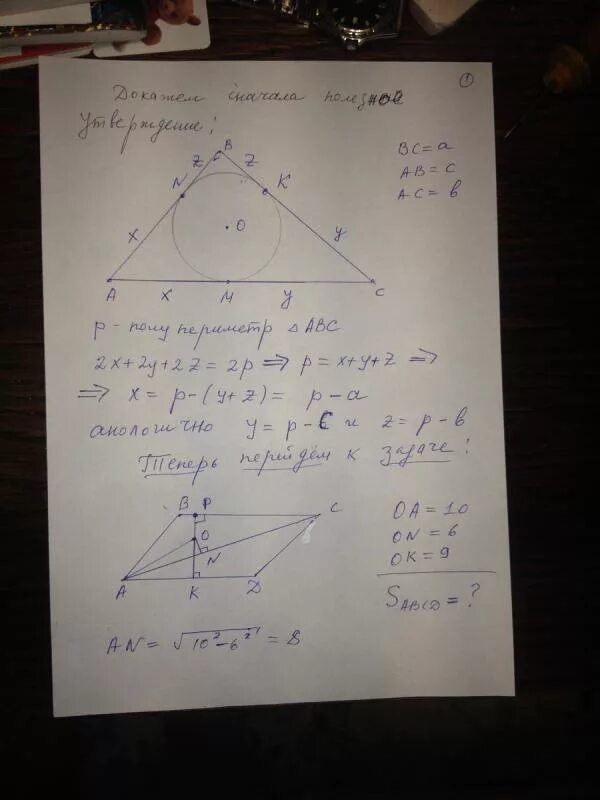 ①
Докажем сначала полезное
Утверждение:
B
z z
N K
BC = a
AB = c
AC = b
x O y
A x M y C
p - полупериметр △ABC
2x+2y+2z = 2p ⇒ p = x+y+z ⇒
⇒ x = p-(y+z) = p-a
анологично y = p-c и z = p-b
Теперь перейдём к задаче:
B P C
O
N
A K D
OA = 10
ON = 6
OK = 9
S_ABCD = ?
AN = √10²-6² = 8